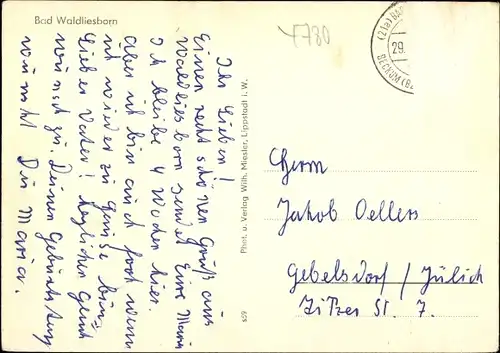 Bad Waldliesborn
4780
Ihr Lieben!
Einen recht schönen Gruß aus
Waldliesborn sendet Eure Maria
Ich bleibe 4 Wochen hier.
Aber ich bin auch froh wenn
ich wieder zu Hause bin.
Lieber Vater! herzlichen Glück
wünsch zu Deinen Geburtstag
wünscht Dir Maria.
Phot. u. Verlag Wilh. Miesler, Lippstadt i. W.
(21a) BAD
29.
BECKUM (BZ
Herrn
Jakob Oellers
Gebelsdorf / Jülich
Zitzer St. 7.